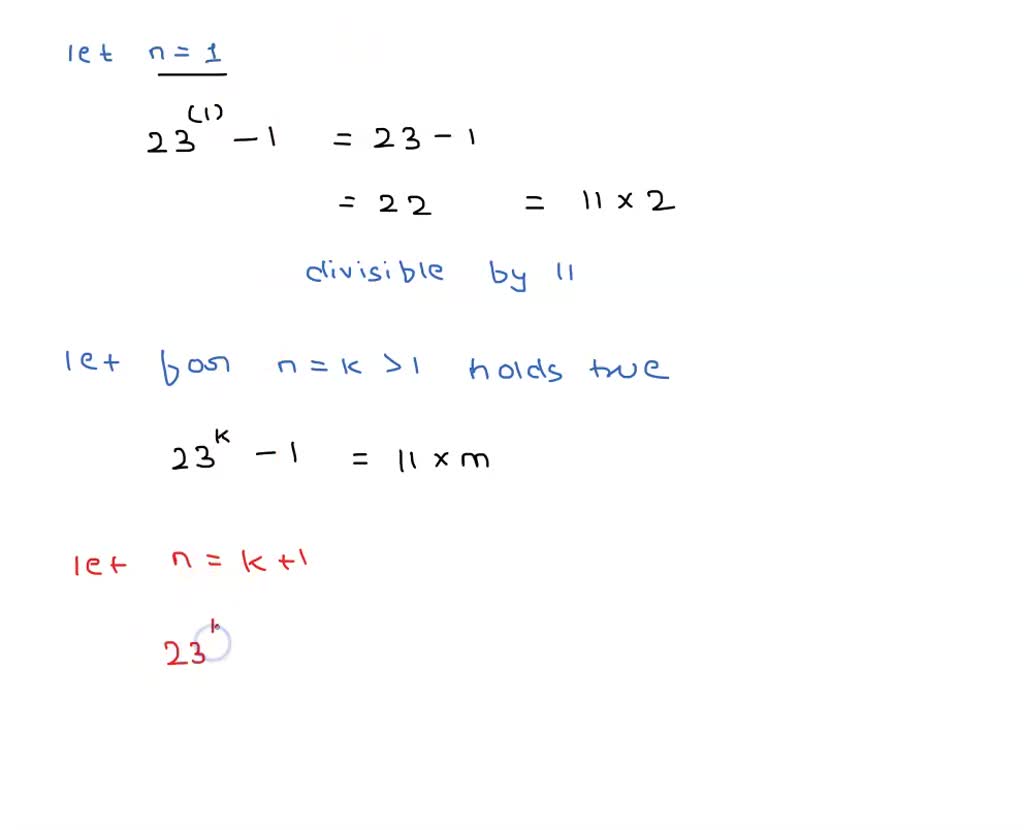 let n = 1
23^(1) - 1 = 23 - 1
= 22 = 11 × 2
divisible by 11
let for n = k > 1 holds true
23^k - 1 = 11 × m
let n = k + 1
23^k